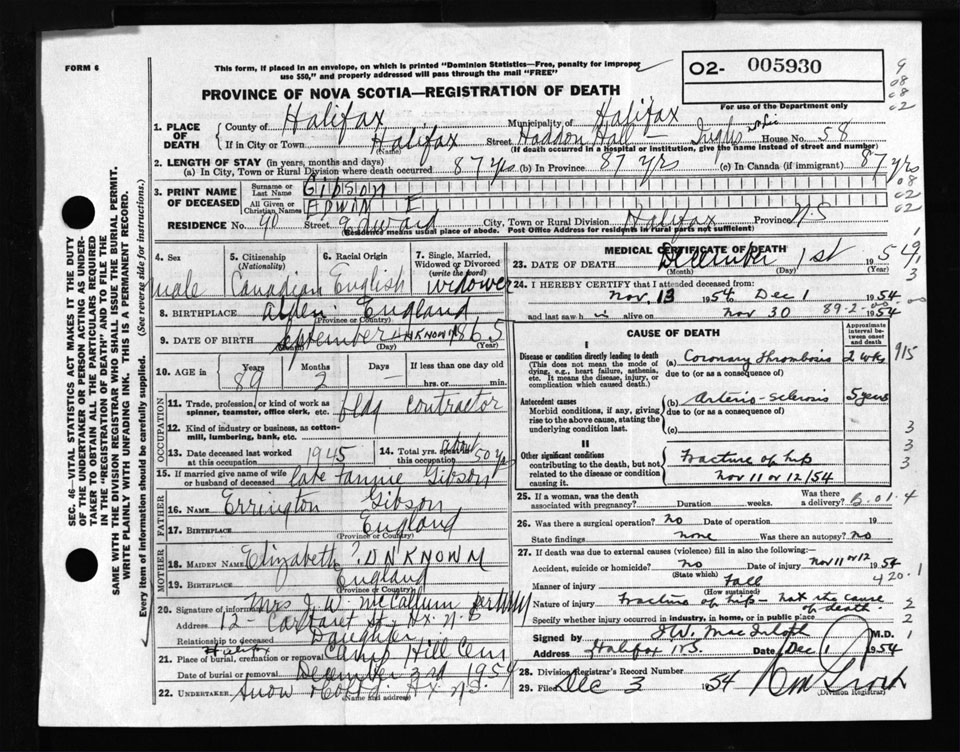 FORM 6
This form, if placed in an envelope, on which is printed "Dominion Statistics—Free, penalty for improper
use $50," and properly addressed will pass through the mail "FREE"
O2- 005930
PROVINCE OF NOVA SCOTIA—REGISTRATION OF DEATH
For use of the Department only
1. PLACE OF DEATH
County of Halifax Municipality of Halifax
If in City or Town Halifax Street Haddon Hall — Inglis House No. 58
(Name) (If death occurred in a hospital or institution, give the name instead of street and number)
2. LENGTH OF STAY (in years, months and days)
(a) In City, Town or Rural Division where death occurred 87 yrs (b) In Province 87 yrs (c) In Canada (if immigrant) 87 yrs
3. PRINT NAME OF DECEASED
Surname or Last Name Gibson
All Given or Christian Names EDWIN E
RESIDENCE No. 40 Street Edward City, Town or Rural Division Halifax Province N.S
(Residence means usual place of abode. Post Office Address for residents in rural parts not sufficient)
4. Sex male
5. Citizenship (Nationality) Canadian
6. Racial Origin English
7. Single, Married, Widowed or Divorced (write the word) widower
8. BIRTHPLACE England
(Province or Country)
9. DATE OF BIRTH September UNKNOWN 1865
(Month) (Day) (Year)
10. AGE in Years 89 Months 2 Days — If less than one day old
hrs. or min.
OCCUPATION
11. Trade, profession, or kind of work as spinner, teamster, office clerk, etc. bldg contractor
12. Kind of industry or business, as cotton-mill, lumbering, bank, etc.
13. Date deceased last worked at this occupation 1945
14. Total yrs. spent in this occupation about 50 yrs
15. If married give name of wife or husband of deceased late Fannie Gibson
FATHER
16. NAME Errington Gibson
17. BIRTHPLACE England
(Province or Country)
MOTHER
18. MAIDEN NAME Elizabeth ? UNKNOWN
19. BIRTHPLACE England
(Province or Country)
20. Signature of informant Mrs J. W. McCallum
Address 12 - Hx. N.S
Relationship to deceased Daughter
21. Place of burial, cremation or removal Halifax Camp Hill Cem
Date of burial or removal December 3rd 1954
22. UNDERTAKER Snow & Co Hx N.S.
(Name and address)
MEDICAL CERTIFICATE OF DEATH
23. DATE OF DEATH December 1st 1954
(Month) (Day)
24. I HEREBY CERTIFY that I attended deceased from:
Nov. 13 1954 to Dec 1 1954
and last saw h i alive on Nov 30 1954
89-2-00
CAUSE OF DEATH
Approximate interval between onset and death
I
Disease or condition directly leading to death
(This does not mean the mode of dying, e.g., heart failure, asthenia, etc. It means the disease, injury, or complication which caused death.)
(a) Coronary Thrombosis 2 wks
due to (or as a consequence of)
Antecedent causes
Morbid conditions, if any, giving rise to the above cause, stating the underlying condition last.
(b) Arterio-sclerosis 5 years
due to (or as a consequence of)
(c)
II
Other significant conditions
contributing to the death, but not related to the disease or condition causing it.
Fracture of hip
Nov 11 or 12/54
25. If a woman, was the death associated with pregnancy? Duration weeks. Was there a delivery?
26. Was there a surgical operation? no Date of operation 19
State findings none Was there an autopsy? no
27. If death was due to external causes (violence) fill in also the following:
Accident, suicide or homicide? no Date of injury Nov 11 or 12 1954
(State which)
Manner of injury Fall
(How sustained)
Nature of injury Fracture of hip - not the cause of death.
Specify whether injury occurred in industry, in home, or in public place
Signed by M.D.
Address Halifax N.S. Date Dec 1 1954
28. Division Registrar's Record Number
29. Filed Dec 3 1954
(Division Registrar)
SEC. 46—VITAL STATISTICS ACT MAKES IT THE DUTY
OF THE UNDERTAKER OR PERSON ACTING AS UNDER-
TAKER TO OBTAIN ALL THE PARTICULARS REQUIRED
IN THE "REGISTRATION OF DEATH" AND TO FILE THE
SAME WITH THE DIVISION REGISTRAR WHO SHALL ISSUE THE BURIAL PERMIT.
WRITE PLAINLY WITH UNFADING INK. THIS IS A PERMANENT RECORD.
Every item of information should be carefully supplied. (See reverse side for instructions.)